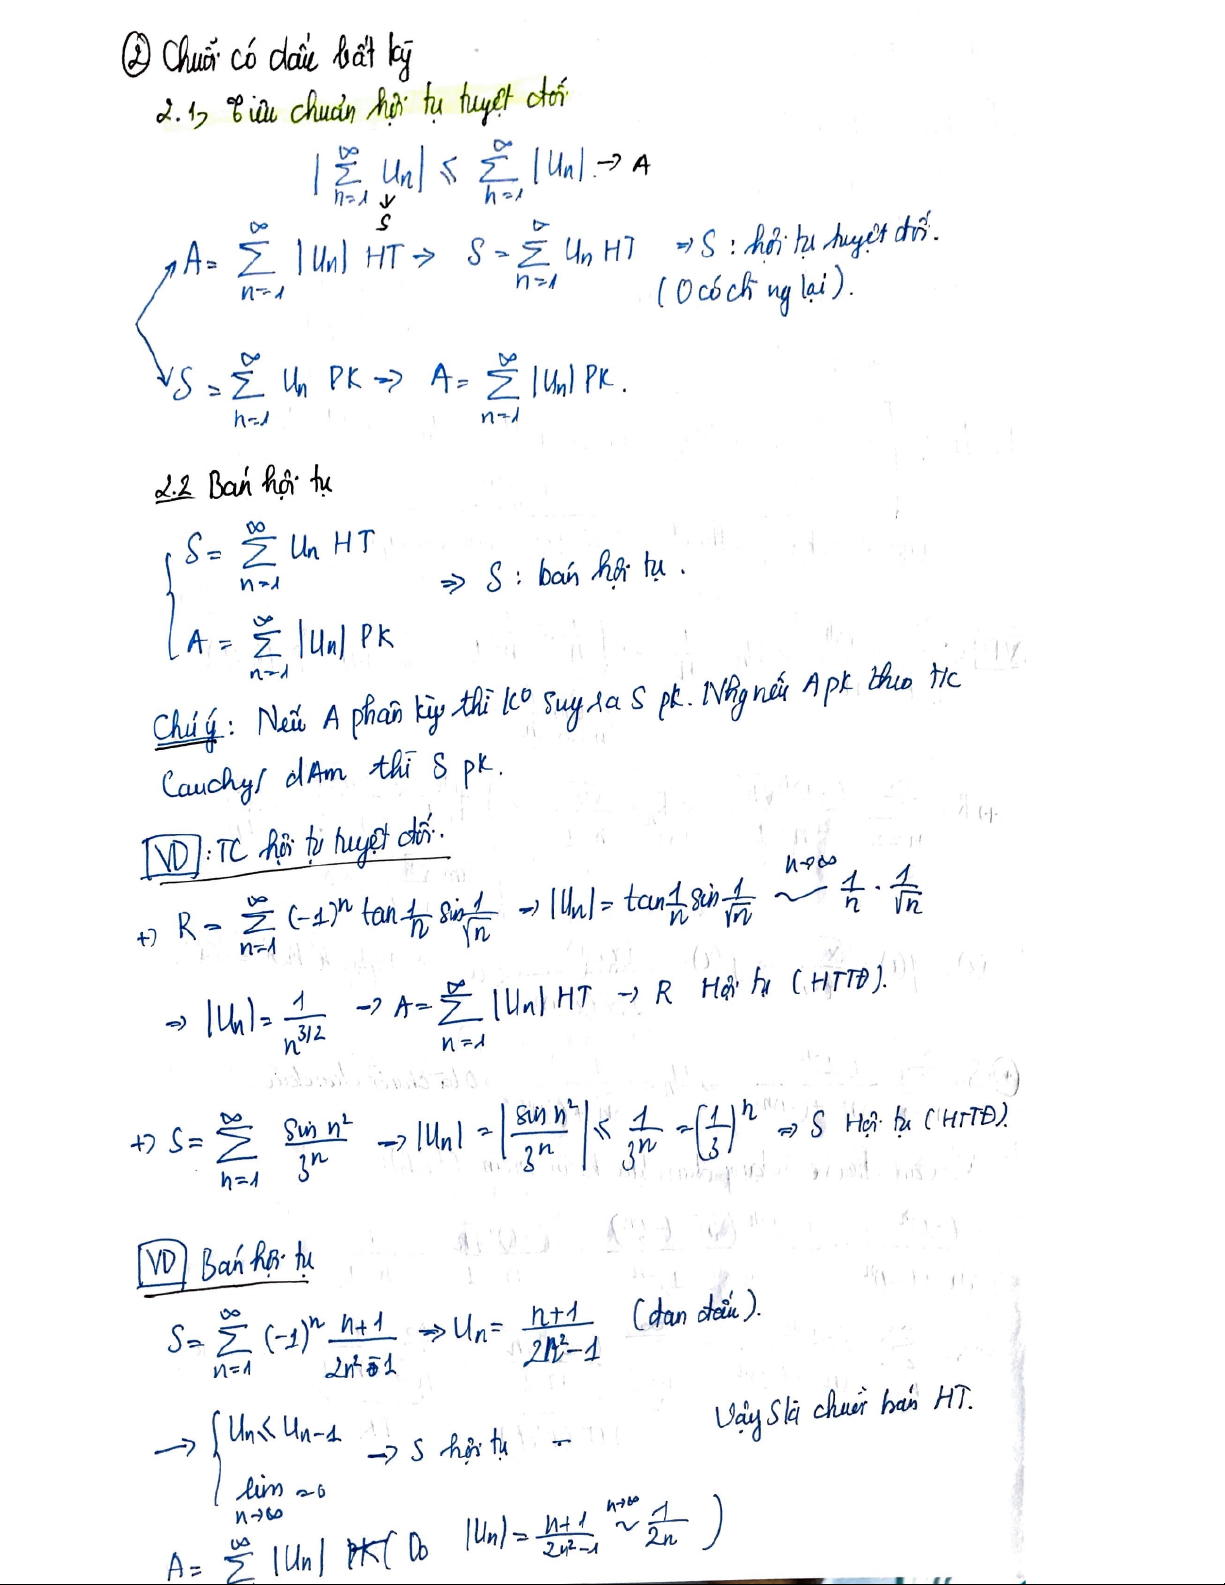 ② Chuỗi có dấu bất kỳ
2.1) Tiêu chuẩn hội tụ tuyệt đối
|∑_{n=1}^{∞} Un| ≤ ∑_{n=1}^{∞} |Un| → A
↓
S
A = ∑_{n=1}^{∞} |Un| HT → S = ∑_{n=1}^{∞} Un HT ⇒ S : hội tụ tuyệt đối.
(0 có ch ng lại).
S = ∑_{n=1}^{∞} Un PK ⇒ A = ∑_{n=1}^{∞} |Un| PK.
2.2 Bán hội tụ
S = ∑_{n=1}^{∞} Un HT
⇒ S : bán hội tụ.
A = ∑_{n=1}^{∞} |Un| PK
Chú ý: Nếu A phân kỳ thì k⁰ suy ra S pk. Nhg nếu A pk theo t/c
Cauchy/ dAm thì S pk.
VD: TC hội tụ tuyệt đối.
+) R = ∑_{n=1}^{∞} (-1)^n tan 1/n sin 1/√n → |Un| = tan 1/n sin 1/√n ~ (n→∞) 1/n . 1/√n
⇒ |Un| = 1/n^{3/2} → A = ∑_{n=1}^{∞} |Un| HT → R Hội tụ (HTTĐ).
+) S = ∑_{n=1}^{∞} sin n²/3^n → |Un| = |sin n²/3^n| ≤ 1/3^n = (1/3)^n ⇒ S Hội tụ (HTTĐ).
VD Bán hội tụ
S = ∑_{n=1}^{∞} (-1)^n n+1/2n²-1 ⇒ Un = n+1/2n²-1 (đan dấu).
→ { Un ≤ Un-1 → S hội tụ - Vậy S là chuỗi bán HT.
lim_{n→∞} = 0
A = ∑^{∞} |Un| PK ( Do |Un| = n+1/2n²-1 ~ (n→∞) 1/2n )